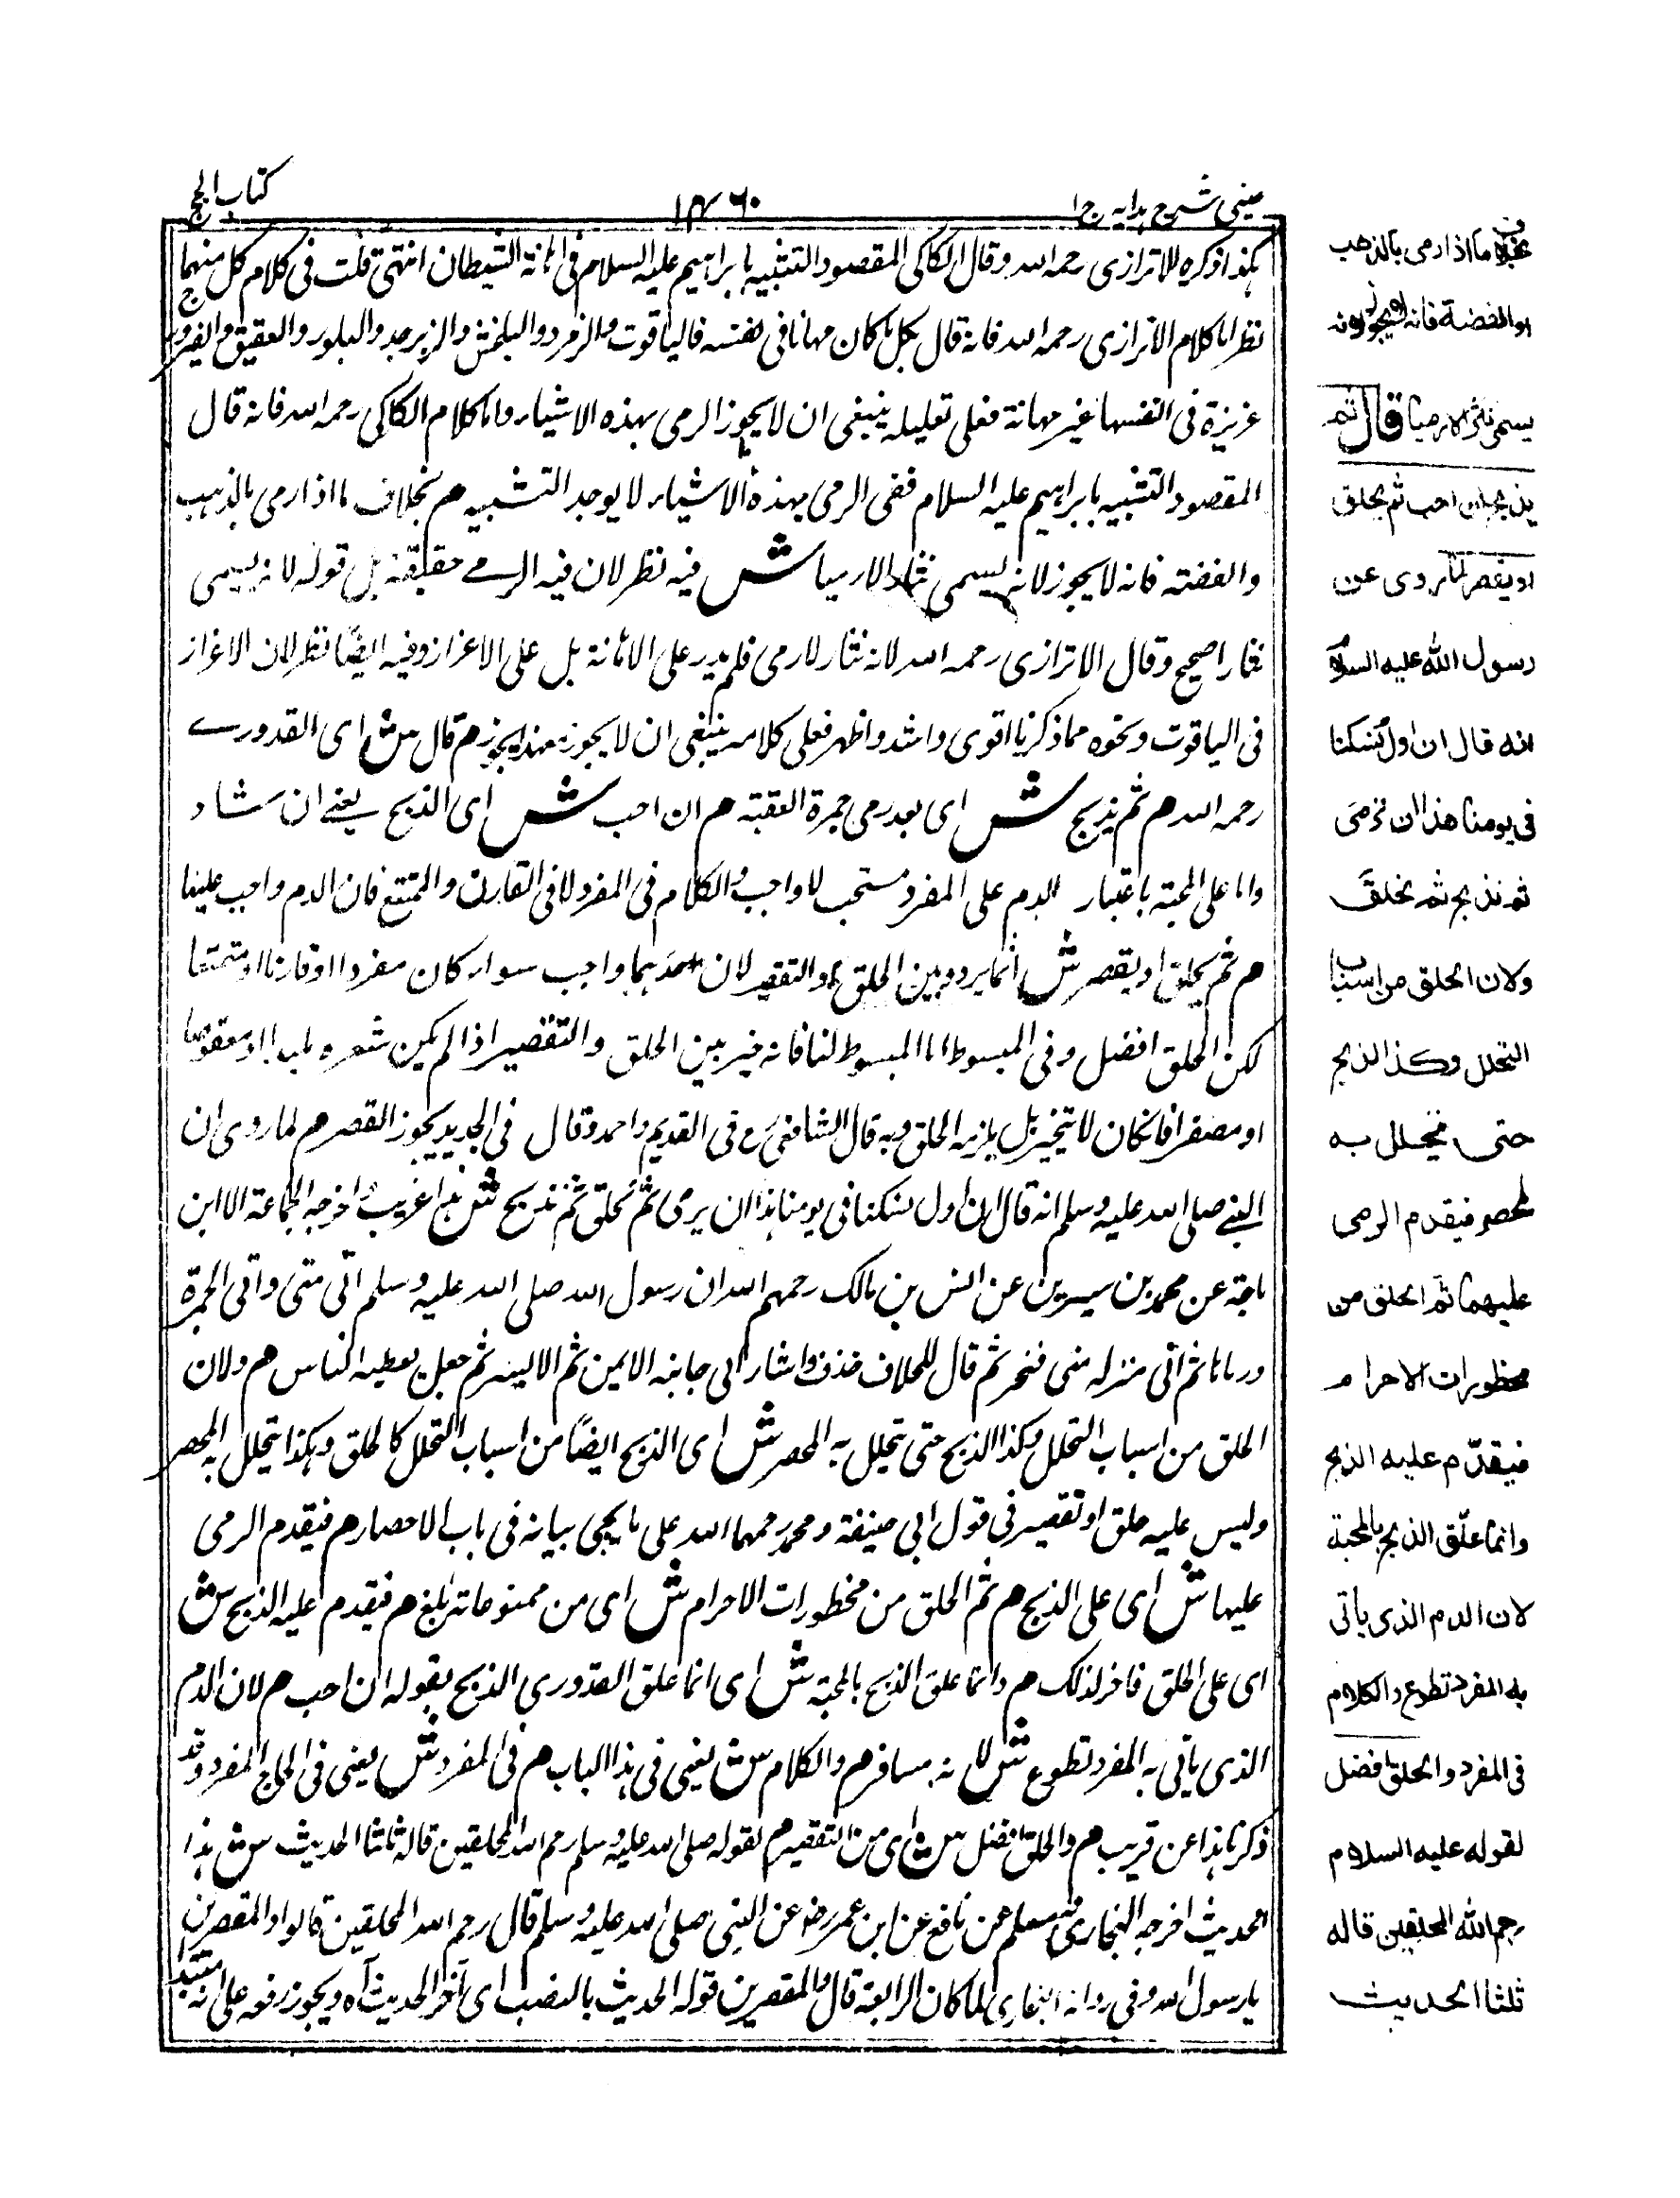 عینی شرح ہدایہ ج ا
۱۴۶۰
کتاب الحج
ہکذا ذکرہ الاترازی رحمہ اللہ وقال الکاکی المقصود التشبیہ بابراہیم علیہ السلام فی اہانۃ الشیطان انتہی قلت فی کلام کل منہما
نظر اما کلام الاترازی رحمہ اللہ فانہ قال بکل ما کان مہانا فی نفسہ فالیاقوت والزمرد والبلخش والزبرجد والبلور والعقیق والفیروزج
عزیزۃ فی انفسہا غیر مہانۃ فعلی تعلیلہ ینبغی ان لا یجوز الرمی بہذہ الاشیاء واما کلام الکاکی رحمہ اللہ فانہ قال
المقصود التشبیہ بابراہیم علیہ السلام ففی الرمی بہذہ الاشیاء لا یوجد التشبیہ ھم بخلاف ما اذا رمی بالذہب
والفضۃ فانہ لا یجوز لانہ یسمی نثارا لا رمیا ش فیہ نظر لان فیہ الرمے حقیقۃ بل قولہ لانہ یسمی
نثارا صحیح وقال الاترازی رحمہ اللہ لانہ نثار لا رمی فلم یدر علی الاہانۃ بل علی الاعزاز وفیہ ایضًا نظر لان الاعزاز
فی الیاقوت ونحوہ مما ذکرنا اقوی واشد واظہر فعلی کلامہ ینبغی ان لا یجوز مہنذا یجوز م قال ش ای القدورے
رحمہ اللہ ھم ثم یذبح ش ای بعد رمی جمرۃ العقبۃ ھم ان احب ش ای الذبح یعنے ان شاء
واما علی المحبۃ باعتبار الدم علی المفرد مستحب لا واجب والکلام فی المفرد لا فی القارن والمتمتع فان الدم واجب علینا
ھم ثم یحلق او یقصر ش انما یردد بین الحلق او التقصیر لان احدہما واجب سواء کان مفردا او قارنا او متمتعا
لکن الحلق افضل وفی المبسوط اما المبسوط لنا فانہ خیر بین الحلق والتقصیر اذا لم یکن شعرہ ملبدا او معقوصا
او مضفرا فان کان لا یتخیر بل یلزمہ الحلق وبہ قال الشافعی رح فی القدیم واحمد وقال فی الجدید یجوز القصر ھم لما روی ان
النبے صلی اللہ علیہ وسلم انہ قال ان اول نسکنا فی یومنا ہذا ان یرمی ثم نحلق ثم نذبح ش ہذا غریب اخرجہ الجماعۃ الا ابن
ماجۃ عن محمد بن سیرین عن انس بن مالک رحمہم اللہ ان رسول اللہ صلی اللہ علیہ وسلم اتی منی واتی الجمرۃ
ورماہا ثم اتی منزلہ منی فنحر ثم قال للحلاق خذ واشار الی جانبہ الایمن ثم الایسر ثم جعل یعطیہ الناس ھم ولان
الحلق من اسباب التحلل وکذا الذبح حتی یتحلل بہ المحصر ش ای الذبح ایضًا من اسباب التحلل کالحلق وہکذا یتحلل بہ المحصر
ولیس علیہ حلق او تقصیر فی قول ابی حنیفۃ ومحمد رحمہما اللہ علی ما یجی بیانہ فی باب الاحصار ھم فیقدم الرمی
علیہا ش ای علی الذبح ھم ثم الحلق من محظورات الاحرام ش ای من ممنوعاتہ ھم فیقدم علیہ الذبح ش
ای علی الحلق فاخر لذلک ھم وانما علق الذبح بالمحبۃ ش ای انما علق القدوری الذبح بقولہ ان احب ھم لان الدم
الذی یاتی بہ المفرد تطوع ش لانہ مسافر ھم والکلام ش یعنی فی ہذا الباب ھم فی المفرد ش یعنی فی الحاج المفرد وقد
ذکرنا ہذا عن قریب ھم والحلق افضل ش ای من التقصیر ھم لقولہ صلی اللہ علیہ وسلم رحم اللہ المحلقین قالہ ثلثا الحدیث ش ہذا
الحدیث اخرجہ البخاری ومسلم عن نافع عن ابن عمر رضہ عن النبی صلی اللہ علیہ وسلم قال رحم اللہ المحلقین قالوا والمقصرین
یا رسول اللہ وفی روایۃ البخاری لما کان الرابعۃ قال والمقصرین قولہ الحدیث بالنصب ای آخر الحدیث آہ ویجوز رفعہ علی انہ مبتدا
بخلاف ما اذا رمی بالذهب
او الفضة فانه لا يجوز لانه
يسمى نثرا لا رميا قال ثم
يذبح ان احب ثم يحلق
او يقصر لما روى عن
رسول الله عليه السلام
انه قال ان اول نسكنا
فى يومنا هذا ان نرمى
ثم نذبح ثم نحلق
ولان الحلق من اسباب
التحلل وكذا الذبح
حتى يتحلل به
المحصر فيقدم الرمى
عليهما ثم الحلق من
محظورات الاحرام
فيقدّم عليه الذبح
وانما علّق الذبح بالمحبة
لان الدم الذى ياتى
به المفرد تطوع والكلام
فى المفرد والحلق افضل
لقوله عليه السلام
رحم الله المحلقين قاله
ثلثا الحديث